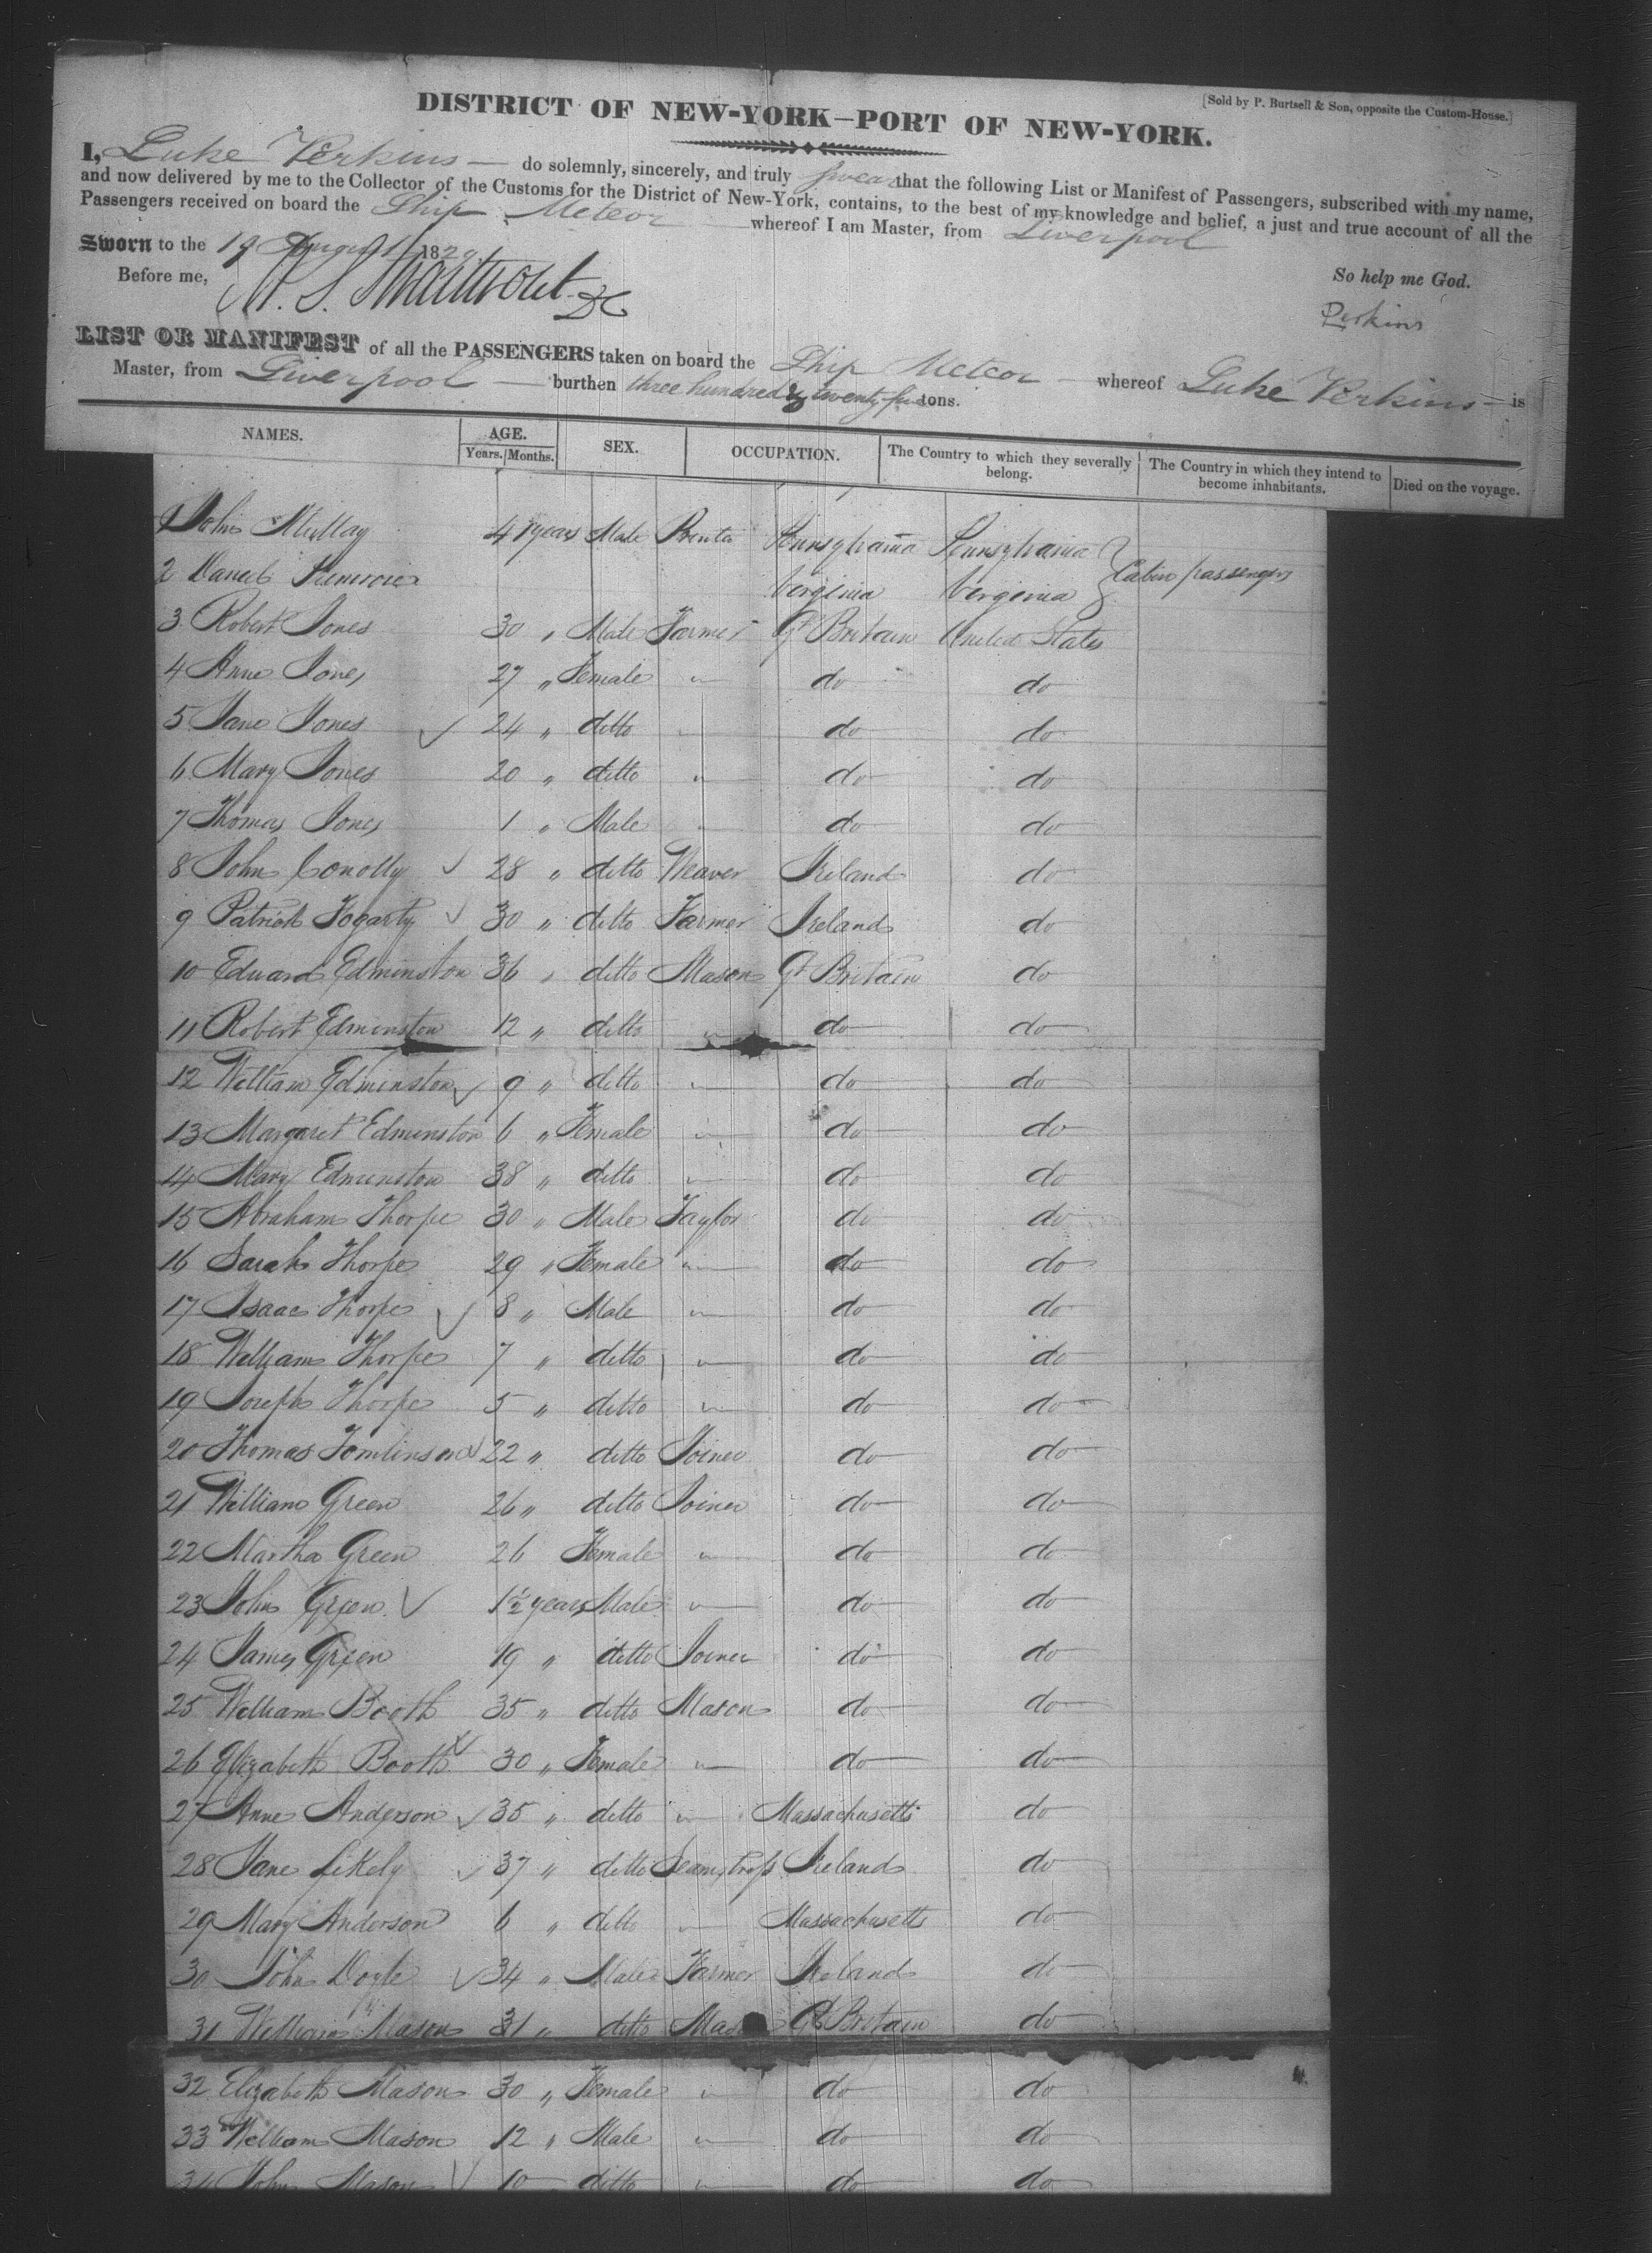 [Sold by P. Burtsell & Son, opposite the Custom-House.]
DISTRICT OF NEW-YORK—PORT OF NEW-YORK.
I, Luke Perkins — do solemnly, sincerely, and truly swear that the following List or Manifest of Passengers, subscribed with my name,
and now delivered by me to the Collector of the Customs for the District of New-York, contains, to the best of my knowledge and belief, a just and true account of all the
Passengers received on board the Ship Meteor whereof I am Master, from Liverpool
Sworn to the 19 August 1829
So help me God.
Before me,
Perkins
LIST OR MANIFEST of all the PASSENGERS taken on board the Ship Meteor — whereof Luke Perkins — is
Master, from Liverpool — burthen three hundred & twenty five tons.
NAMES. AGE. SEX. OCCUPATION. The Country to which they severally belong. The Country in which they intend to become inhabitants. Died on the voyage.
Years. Months.
1 John 41 years Male Pennsylvania Pennsylvania
2 Virginia Virginia Cabin passengers
3 Robert Jones 30 „ Male Farmer Gt Britain United States
4 Anne Jones 27 „ Female " do do
5 Jane Jones ✓ 24 „ ditto " do do
6 Mary Jones 20 „ ditto " do do
7 Thomas Jones 1 „ Male " do do
8 John Conolly ✓ 28 „ ditto Weaver Ireland do
9 Patrick Fogarty ✓ 30 „ ditto Farmer Ireland do
10 Edward Edminston 36 „ ditto Mason Gt Britain do
11 Robert Edminston 12 „ ditto " do do
12 William Edminston ✓ 9 „ ditto " do do
13 Margaret Edminston 6 „ Female " do do
14 Mary Edminston 38 „ ditto " do do
15 Abraham Thorpe 30 „ Male Taylor do do
16 Sarah Thorpe 29 „ Female " do do
17 Isaac Thorpe ✓ 8 „ Male " do do
18 William Thorpe 7 „ ditto " do do
19 Joseph Thorpe 5 „ ditto " do do
20 Thomas Tomlinson ✓ 22 „ ditto Joiner do do
21 William Green 26 „ ditto Joiner do do
22 Martha Green 26 Female " do do
23 John Green ✓ 1½ years Male " do do
24 James Green 19 „ ditto Joiner do do
25 William Booth 35 „ ditto Mason do do
26 Elizabeth Booth ✓ 30 „ Female " do do
27 Anne Anderson ✓ 35 „ ditto " Massachusetts do
28 Jane Likely ✓ 37 „ ditto Seamstress Ireland do
29 Mary Anderson 6 „ ditto " Massachusetts do
30 John Doyle ✓ 34 „ Male Farmer Ireland do
31 William Mason 31 „ ditto Gt Britain do
32 Elizabeth Mason 30 „ Female " do do
33 William Mason 12 „ Male " do do
34 John Mason ✓ 10 ditto " do do